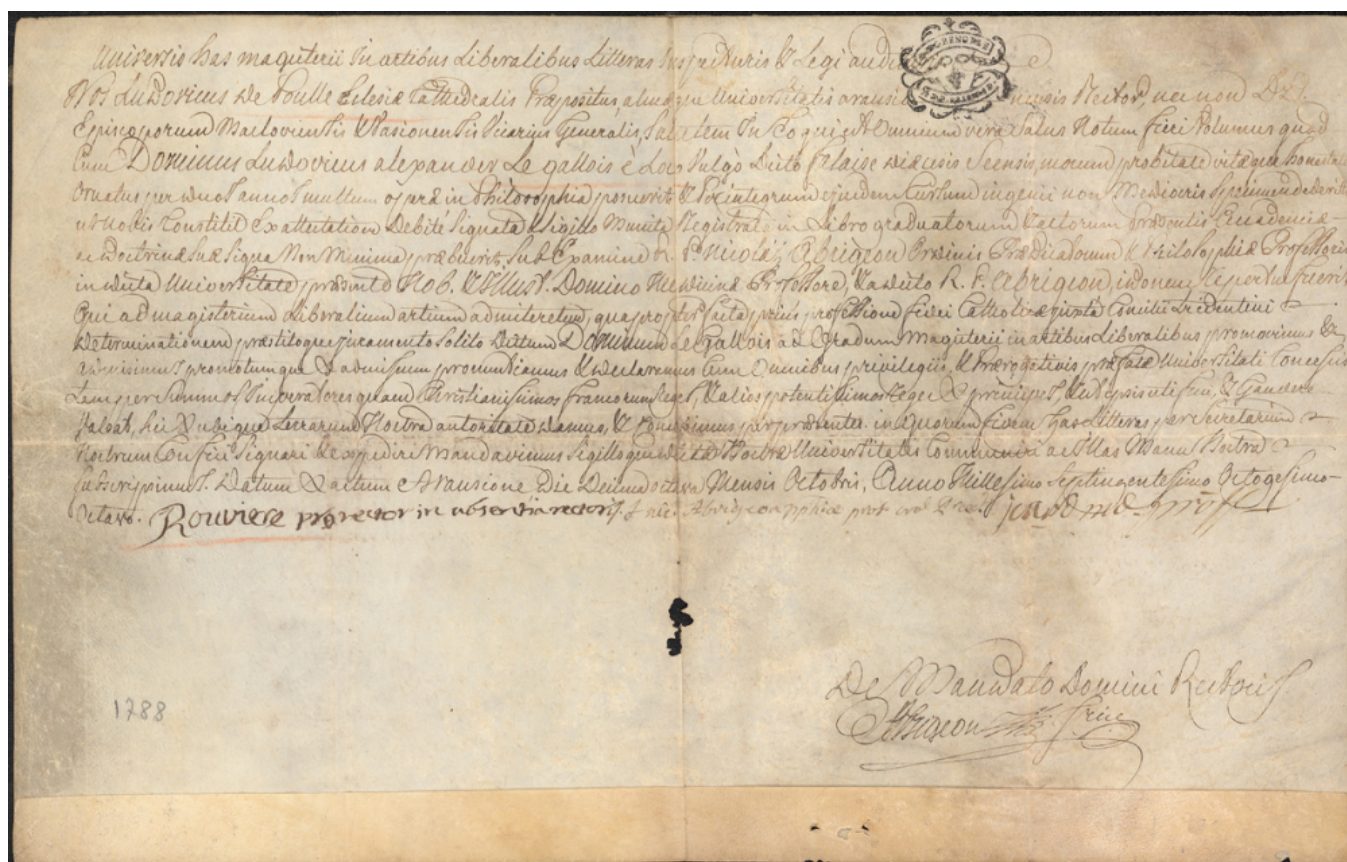 Universis has magisterii in artibus Liberalibus Litteras Inspecturis & Legi
Nos Ludovicus de Poulle Eclesiæ Cathedralis Præpositus, almæque Universitatis Rector, nec non
Episcoporum Vasionensis Vicarius Generalis, Salutem In Eo qui est Omnium vera Salus Notum fieri Volumus quod
Cum Dominus Ludovicus alexander Le gallois è Loco Vulgò Dicto falaise diæcesis morum probitate vitæque honestate
Ornatus per duos annos multum operæ in Philosophia posuerit & Per integrum ejusdem Cursum ingenii non Mediocris Specimen dederit
ut nobis Constitit Ex attestatione Debitè Signata & Sigillo Munita Registrata in Libro graduatorum
ac Doctrinæ Suæ Signa Non Minima præbuerit, Sub Examine R. P. Abrigeon Ordinis Prædicatorum & Philosophiæ Professoris
in dicta Universitate præsente Nob. & Illust. Domino Medicinæ Professore, & a dicto R. P. Abrigeon, idoneus repertus fuerit
Qui ad magisterium Liberalium artium admitteretur, quapropter facta priùs professione fidei Catholicæ juxta Concilii Tridentini
Determinationem præstitoque juramento Solito Dictum Dominum Le Gallois ad Gradum Magisterii in artibus Liberalibus promovimus &
admisimus promotumque & admissum pronuntiamus & declaramus Cum Omnibus privilegiis, & Prærogativis præfatæ Universitati Concessis
tam per Summos Imperatores quam Christianissimos francorum Reges, & alios potentissimos Reges & principes, & Gaudere
Valeat, hic & ubique Terrarum Nostra autoritate damus, & Concedimus per præsentes. in quorum fidem has Litteras per Secretarium
Nostrum Confici Signari & expediri Mandavimus Sigilloque dictæ Nostræ Universitatis Communiri ac illas Manu Nostra
Subscripsimus. Datum & actum Arausione Die Decima octava Mensis Octobris, Anno Millesimo Septingentesimo Octogesimo
Octavo. Rouviere pro rector in absentia rectoris
De Mandato Domini Rectoris.
Abrigeon
1788